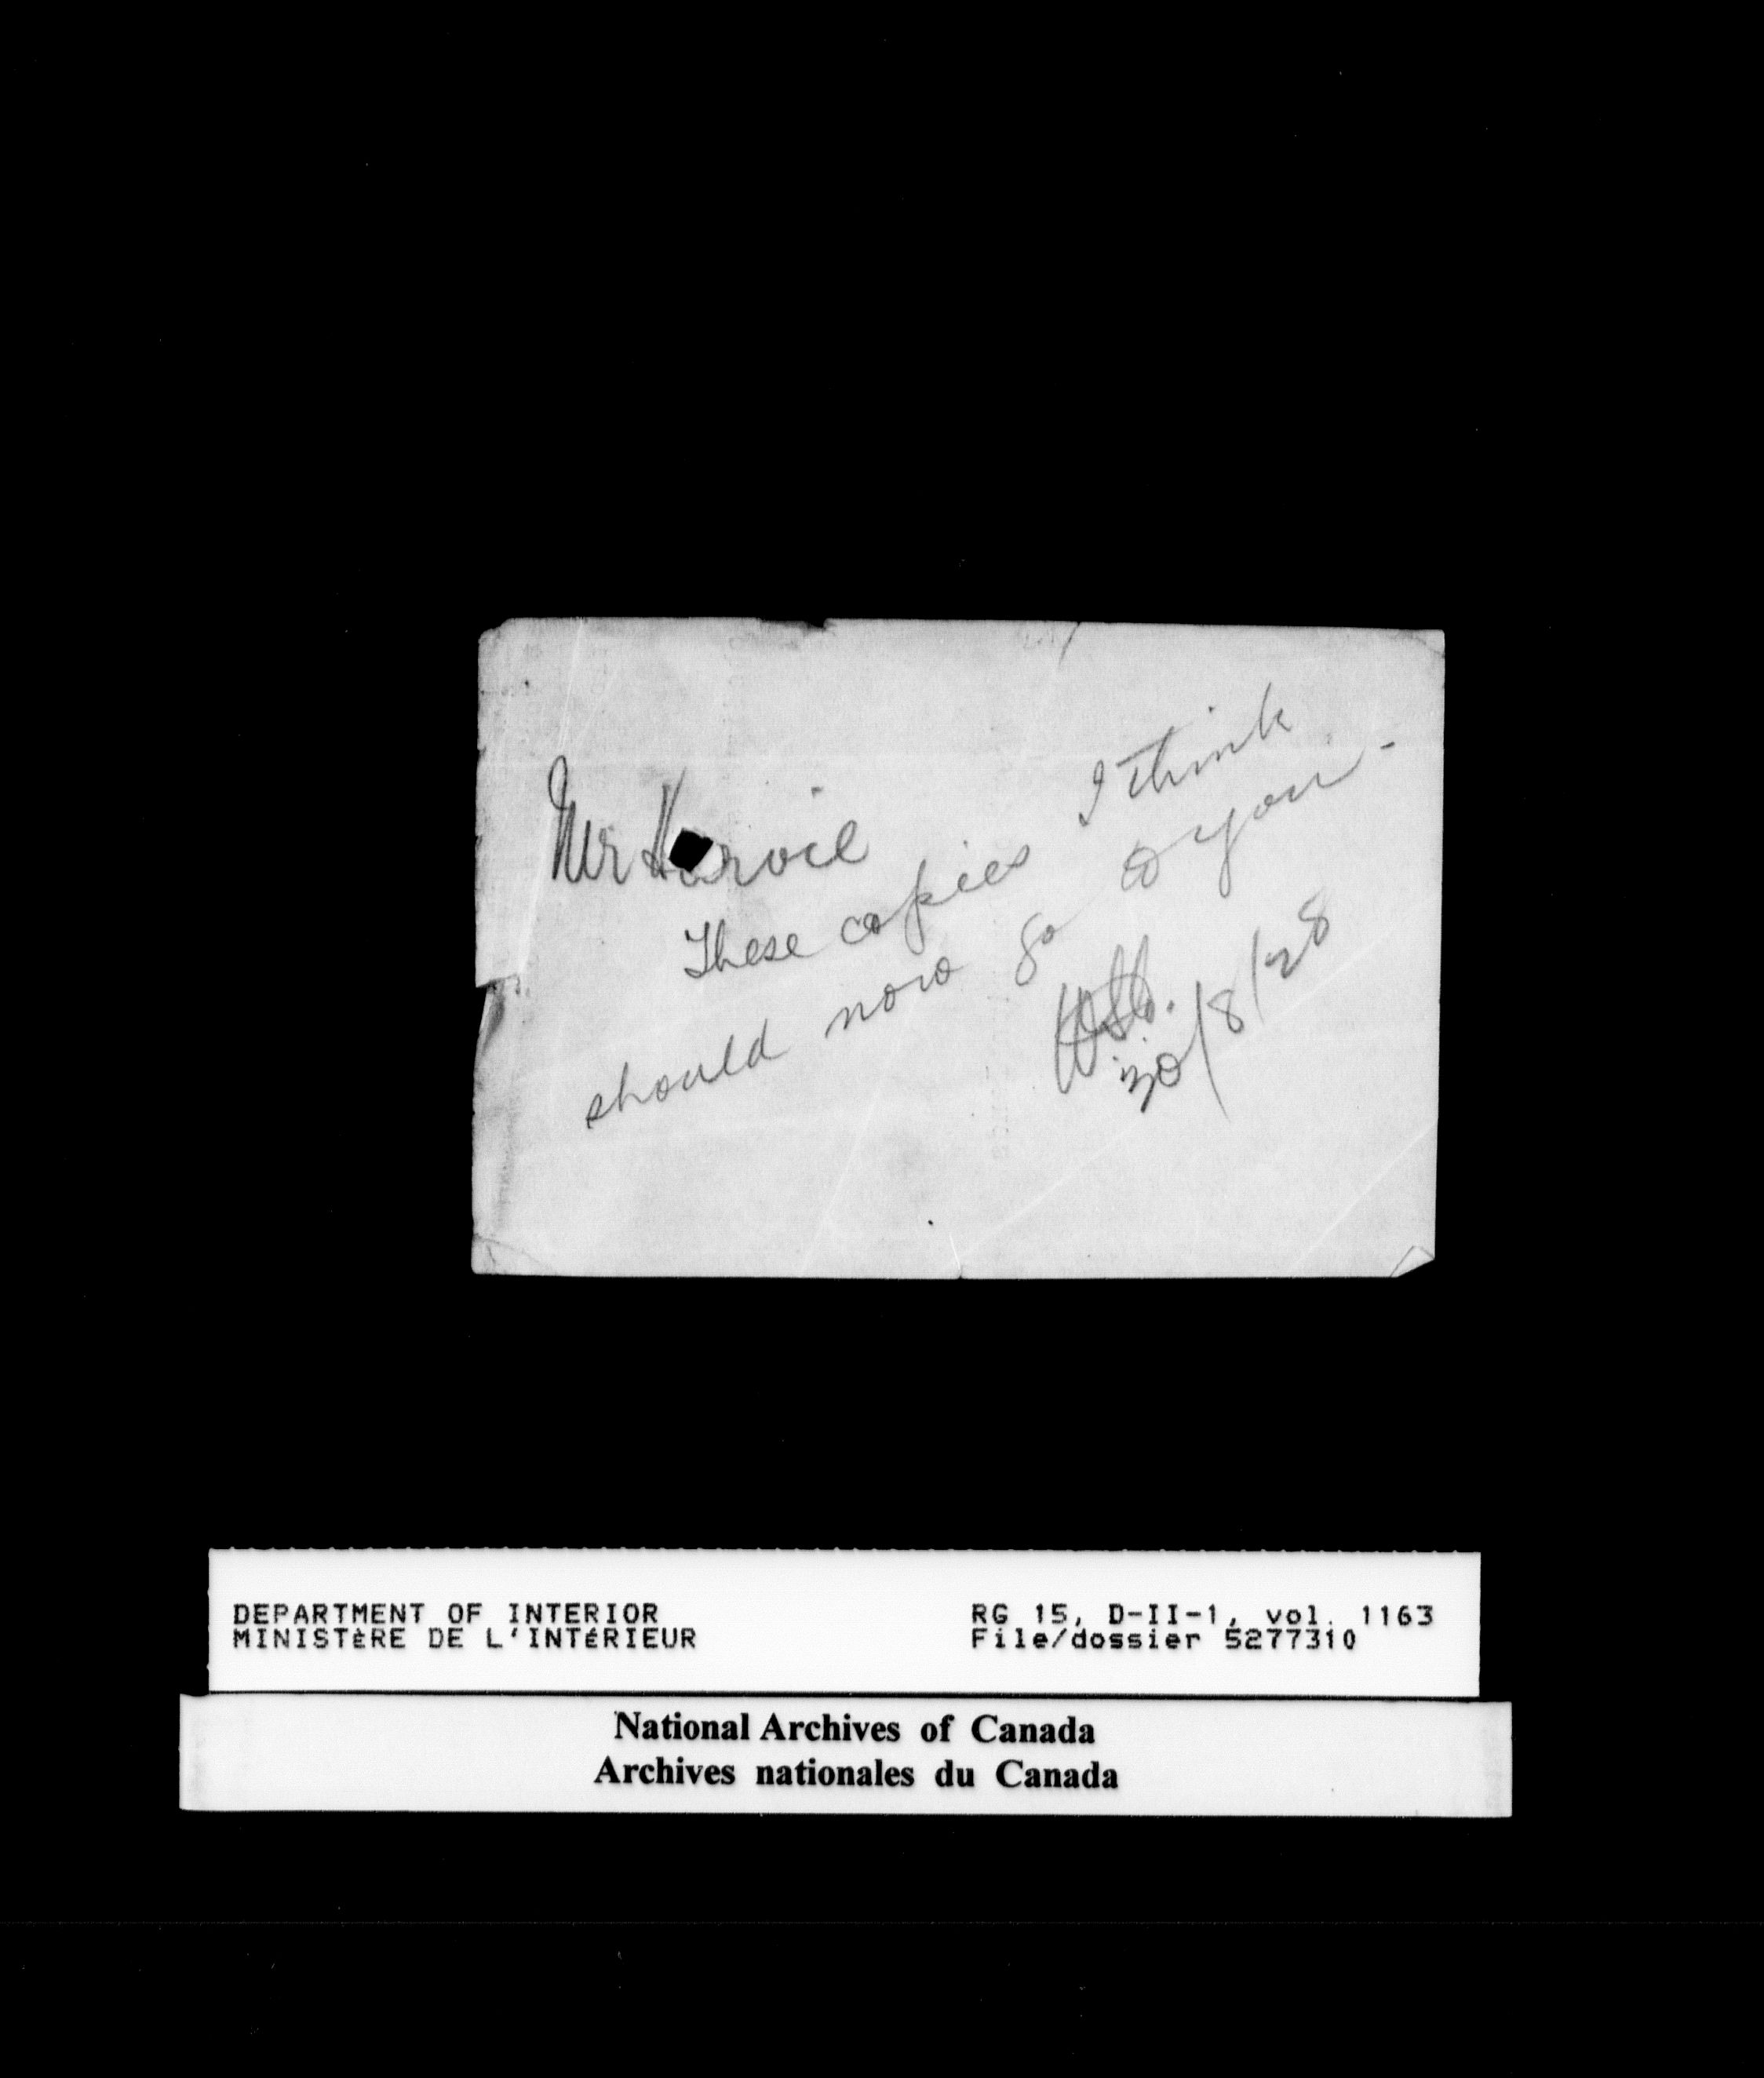 Mr
These copies I think
should now go to you -
30/8/28
DEPARTMENT OF INTERIOR
MINISTÈRE DE L'INTÉRIEUR
RG 15, D-II-1, vol. 1163
File/dossier 5277310
National Archives of Canada
Archives nationales du Canada